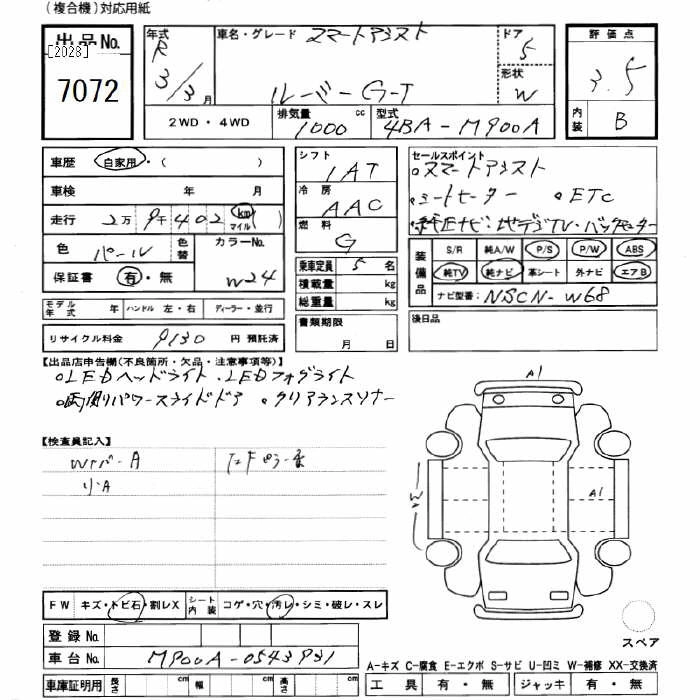 (複合機)対応用紙
出品No.
[2028]
7072
年式
R
3/3月
車名・グレード スマートアシスト
ルーミー G-T
ドア 5
形状 W
評価点
3.5
内装 B
2WD・4WD
排気量 1000 cc
型式 4BA-M900A
車歴 自家用・( )
車検 年 月
走行 2万 9千 402 km マイル ( )
色 パール
色替
カラーNo. W24
保証書 有・無
モデル年式 年
ハンドル 左・右
ディーラー・並行
リサイクル料金 9130 円 預託済
シフト IAT
冷房 AAC
燃料 G
乗車定員 5 名
積載量 kg
総重量 kg
書類期限
月 日
セールスポイント
・スマートアシスト
・シートヒーター ・ETC
・純正ナビ・地デジTV・バックモニター
装備品
S/R 純A/W P/S P/W ABS
純TV 純ナビ 革シート 外ナビ エアB
ナビ型番: NSCN-W68
後日品
【出品店申告欄(不良箇所・欠品・注意事項等)】
・LEDヘッドライト ・LEDフォグライト
・両側パワースライドドア ・クリアランスソナー
【検査員記入】
A
小A
A1
A1
W
FW キズ・トビ石・割レX
シート内装 コゲ・穴・汚レ・シミ・破レ・スレ
登録No.
車台No. M900A-0543931
車庫証明用 長さ cm 幅 cm 高さ cm
スペア
A-キズ C-腐食 E-エクボ S-サビ U-凹ミ W-補修 XX-交換済
工具 有・無 ジャッキ 有・無